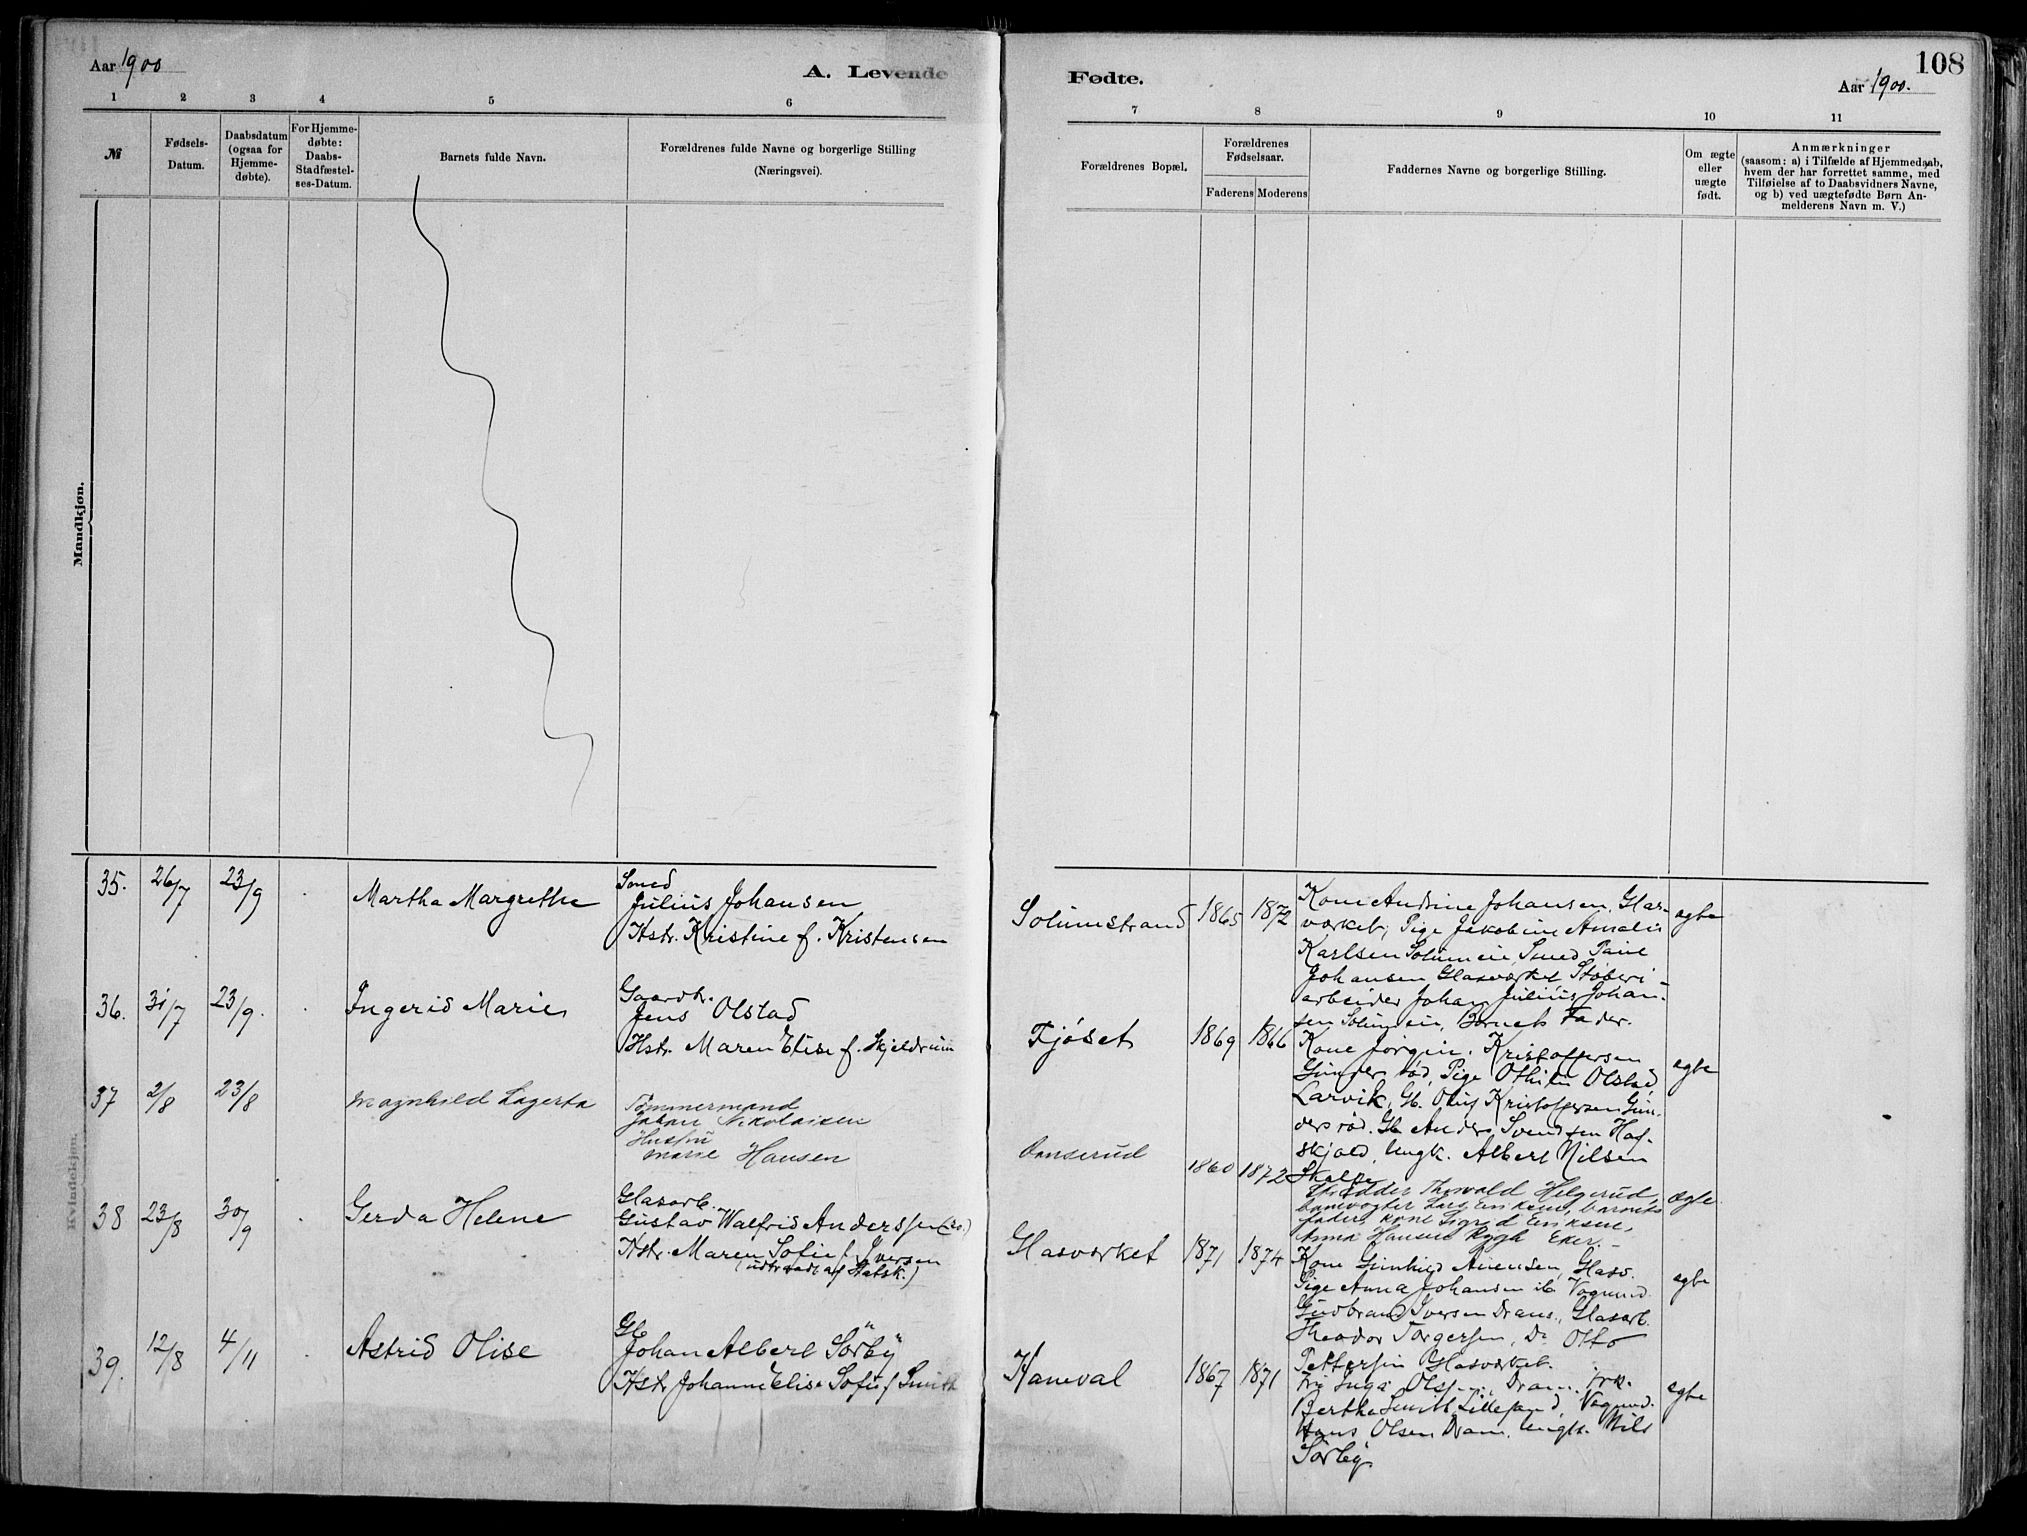 Aar 1900
A. Levende
1 2 3 4 5 6
№
Fødsels-
Datum.
Daabsdatum
(ogsaa for
Hjemme-
døbte).
For Hjemme-
døbte:
Daabs-
Stadfæstel-
ses-Datum.
Barnets fulde Navn.
Forældrenes fulde Navne og borgerlige Stilling
(Næringsvei).
Mandkjøn.
35. 26/7 23/9 Martha Margrethe
Smed
Julius Johansen
Hstr. Kristine f. Kristensen
36. 31/7 23/9. Ingerid Marie
Gaardbr.
Jens Olstad
Hstr. Maren Elise f. Skjeldrum
37 2/8 23/8 Magnhild Lagerta
Tømmermand
Johan Nikolaisen
Hustru
Marie Hansen
Kvindekjøn.
38 23/8 30/9 Gerda Helene
Glasarb.
Gustav Walfrid Anderssen
Hstr. Maren Sofie f. Iversen
(udtraadt af Statsk.)
39. 12/8 4/11 Astrid Olise
Gb
Johan Albert Sörby
Hstr Johanne Elise Sofie f Smith
108
Fødte.
Aar 1900.
7 8 9 10 11
Forældrenes Bopæl.
Forældrenes
Fødselsaar.
Faderens Moderens
Faddernes Navne og borgerlige Stilling.
Om ægte
eller
uægte
født.
Anmærkninger
(saasom: a) i Tilfælde af Hjemmedaab,
hvem der har forrettet samme, med
Tilføielse af to Daabsvidners Navne,
og b) ved uægtefødte Børn An-
melderens Navn m. V.)
Solumstrand 1865 1872
Kone Andrine Johansen, Glas-
værket, Pige Jakobine Amalie
Karlsen Solumeie, Smed Paul
Johansen Glasværket Støberi-
arbeider Johan Julius Johan-
sen Solumeie, Barnets Fader.
egte
Fjøset 1869 1866
Kone Kristoffersen
Gunderrød, Pige Othilie Olstad
Larvik, Gb. Oluf Kristoffersen Gun-
derrød. Gb Anders Svendsen Haf-
skjold, Ungk. Albert Nilsen
egte
1860 1872
Skrædder Thorvald Helgerud,
banevogter Lars Eriksen, barnets
fader, kone Sigrid Eriksen,
Anna Hansen Rygh Eker.
ægte
Glasværket 1871 1874
Kone Gunhild Glasv.
Pige Anna Johansen ib Vognmd.
Gudbrand Iversen Dram., Glasarb.
Theodor Torgersen, Do Otto
Pettersen Glasværket.
egte
Kaneval 1867 1871
Fru Inga Olsen, Dram.
Bertha Smith Vognmd.
Hans Olsen Dram. Ungk. Nils
Sörby
egte